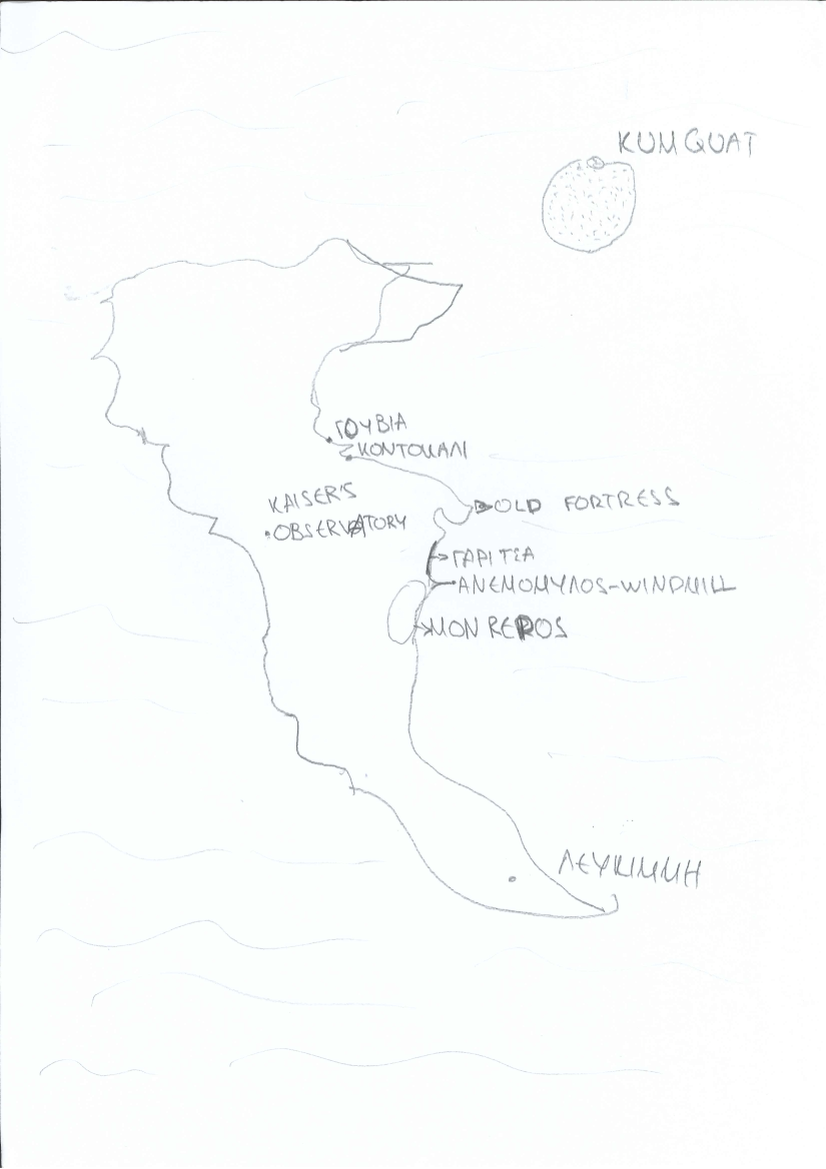 KUMQUAT
ΓΟΥΒΙΑ
ΚΟΝΤΟΚΑΛΙ
KAISER'S
OBSERVATORY
OLD FORTRESS
ΓΑΡΙΤΣΑ
ΑΝΕΜΟΜΥΛΟΣ-WINDMILL
MON REPOS
ΛΕΥΚΙΜΜΗ